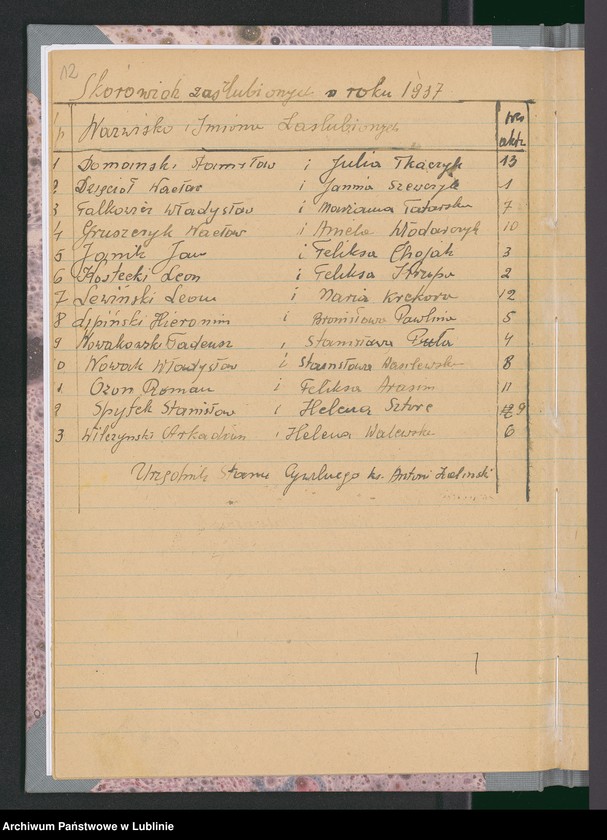 12
Skorowidz zaślubionych w roku 1937
Nazwisko i Imiona Zaślubionych Nr aktu
1 Domański Stanisław i Julia Tkaczyk 13
2 Dzięcioł Wacław i Janina Szewczyk 1
3 Falkowicz Władysław i Marianna Tatarska 7
4 Gruszczyk Wacław i Amelia Włodarczyk 10
5 Janik Jan i Feliksa Chojak 3
6 Kostecki Leon i Feliksa Skrzypa 2
7 Lewiński Leon i Maria Krekora 12
8 Lipiński Hieronim i Bronisława Pawlina 5
9 Nowakowski Tadeusz i Stanisława Puła 4
0 Nowak Władysław i Stanisława Wasilewska 8
1 Ozon Roman i Feliksa Arasim 11
2 Spyfek Stanisław i Helena Sztorc 9
3 Wilczyński Arkadiusz i Helena Walewska 6
Urzędnik Stanu Cywilnego ks. Antoni Kaliński
Archiwum Państwowe w Lublinie